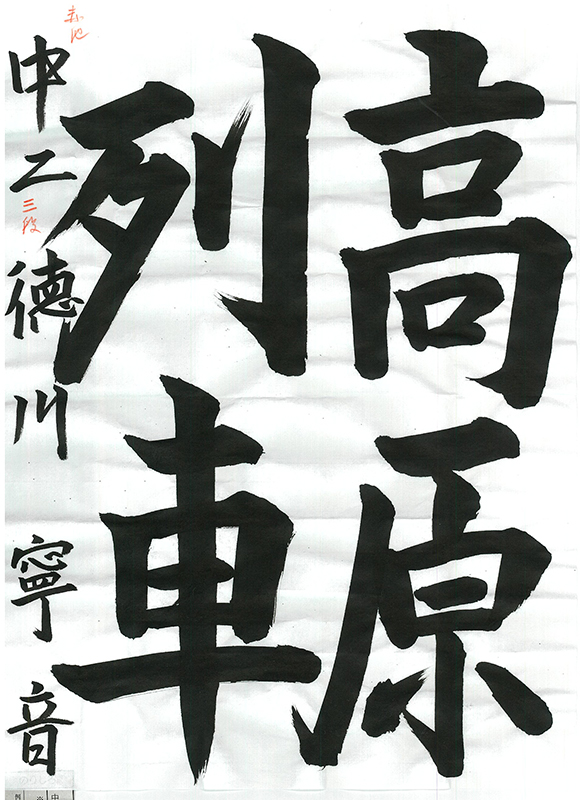 高原
列車
中二 徳川 寧音
三段